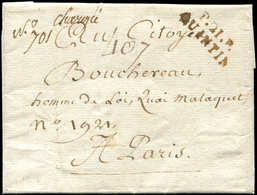 chargé
P.21.P.
QUINTIN
N.° 701 Au Citoyen
107
Bouchereau
homme de Loi, Quai Malaquet
N.° 1921
A Paris.